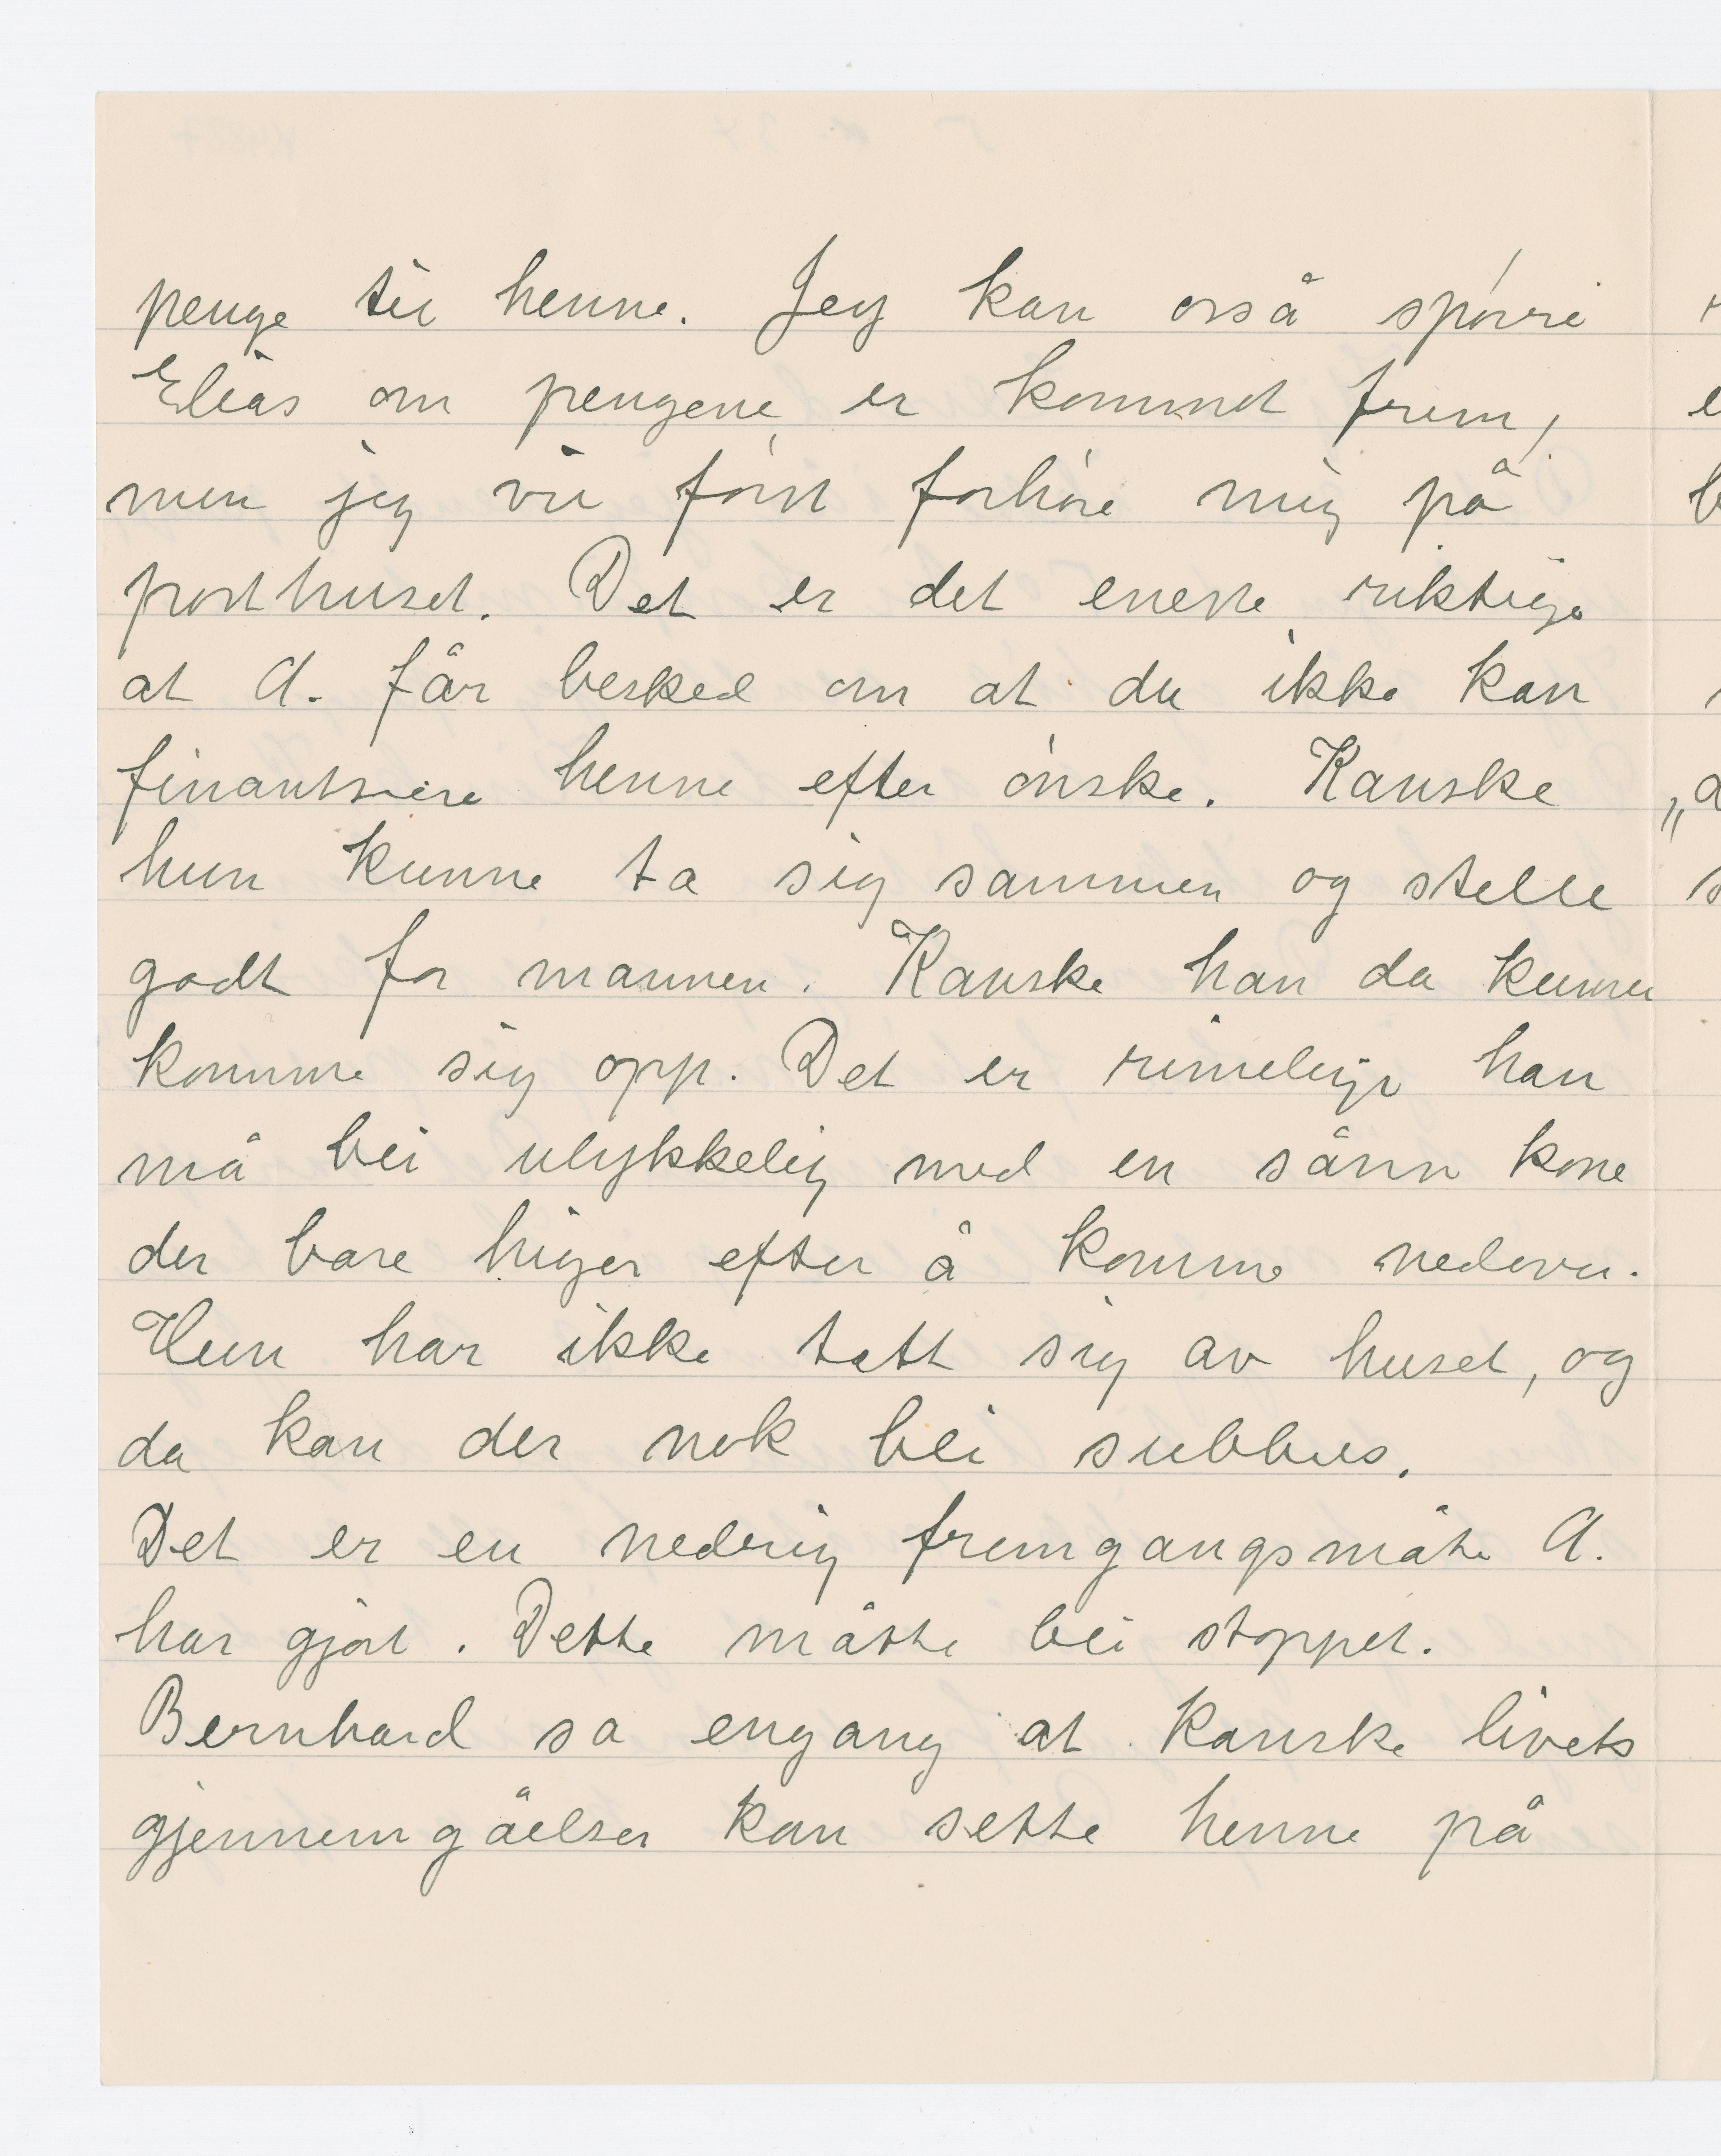 penge til henne. Jeg kan også spørre
Elias om pengene er kommet frem,
men jeg vil først forhøre mig på
posthuset. Det er det eneste riktige
at A. får besked om at du ikke kan
finantsiere henne efter ønske. Kanske
hun kunne ta sig sammen og stelle
godt for mannen. Kanske han da kunne
komme sig opp. Det er rimelige han
må bli ulykkelig med en sånn kone
der bare higer efter å komme nedover.
Hun har ikke tatt sig av huset, og
da kan der nok bli subbus.
Det er en nedrig fremgangsmåte A.
har gjort. Dette måtte bli stoppet.
Bernhard sa engang at kanske livets
gjennemgåelser kan sette henne på